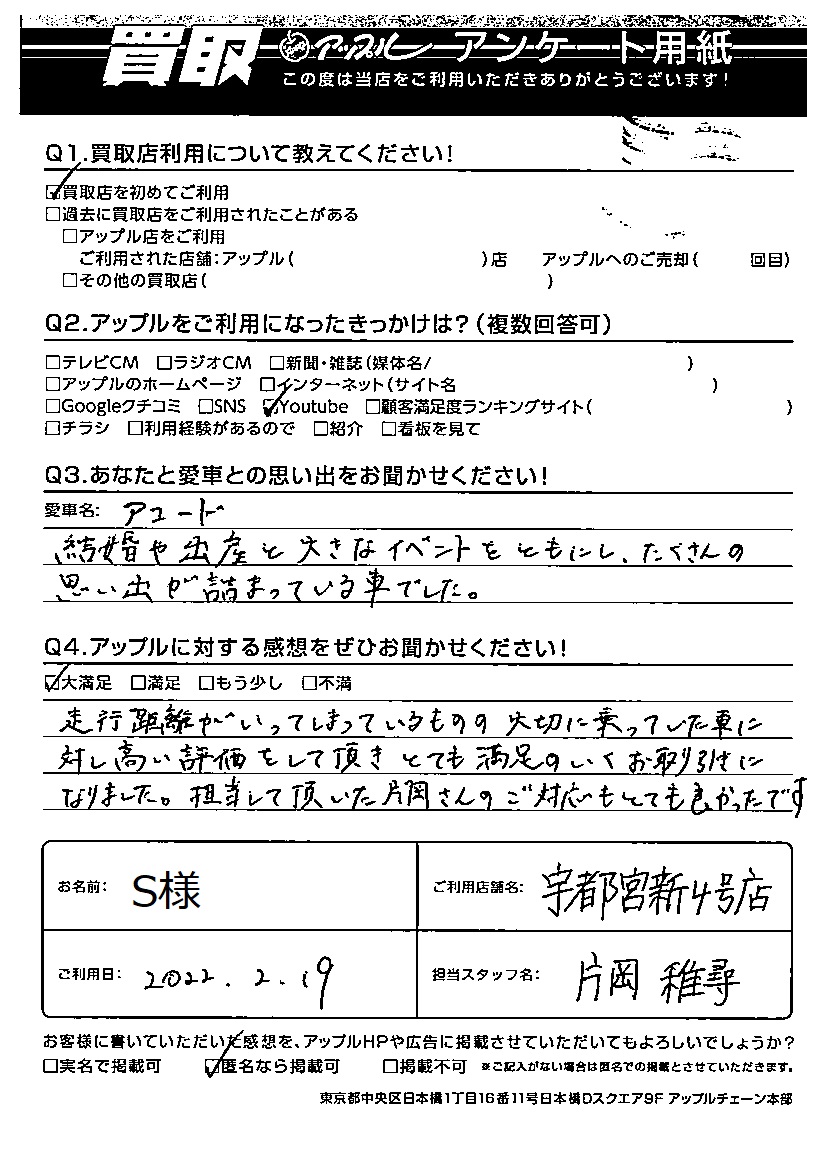 買取 アップル アンケート用紙
この度は当店をご利用いただきありがとうございます!
Q1.買取店利用について教えてください!
☑買取店を初めてご利用
□過去に買取店をご利用されたことがある
□アップル店をご利用
ご利用された店舗:アップル( )店 アップルへのご売却( 回目)
□その他の買取店( )
Q2.アップルをご利用になったきっかけは?(複数回答可)
□テレビCM □ラジオCM □新聞・雑誌(媒体名/ )
□アップルのホームページ □インターネット(サイト名 )
□Googleクチコミ □SNS ☑Youtube □顧客満足度ランキングサイト( )
□チラシ □利用経験があるので □紹介 □看板を見て
Q3.あなたと愛車との思い出をお聞かせください!
愛車名: アコード
結婚や出産と大きなイベントをともにし、たくさんの
思い出が詰まっている車でした。
Q4.アップルに対する感想をぜひお聞かせください!
☑大満足 □満足 □もう少し □不満
走行距離がいってしまっているものの大切に乗っていた車に
対し高い評価をして頂きとても満足のいくお取り引きに
なりました。担当して頂いた片岡さんのご対応もとても良かったです
お名前: S様 ご利用店舗名: 宇都宮新4号店
ご利用日: 2022.2.19 担当スタッフ名: 片岡 稚尋
お客様に書いていただいた感想を、アップルHPや広告に掲載させていただいてもよろしいでしょうか?
□実名で掲載可 ☑匿名なら掲載可 □掲載不可 ※ご記入がない場合は匿名での掲載とさせていただきます。
東京都中央区日本橋1丁目16番11号日本橋Dスクエア9F アップルチェーン本部